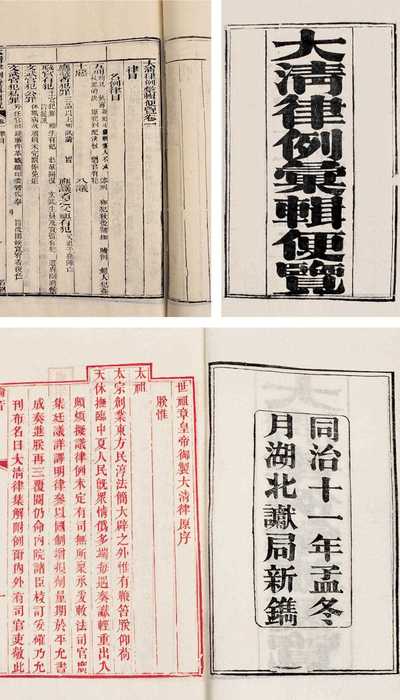 大清律例彙輯便覽
大清律例彙輯便覽卷一
律目
名例律目
五刑
十惡 八議
應議者犯罪 應議者之父祖有犯
職官有犯
文武官犯公罪
文武官犯私罪
同治十一年孟冬
月湖北讞局新鐫
世祖章皇帝御製大清律原序
朕惟
太祖
太宗創業東方民淳法簡大辟之外惟有鞭笞朕仰荷
天休撫臨中夏人民既衆情僞多端每遇奏讞輕重出入
頗煩擬議律例未定有司無所稟承爰敕法司官廣
集廷議詳譯明律參以國制增損劑量期於平允書
成奏進朕再三覆閱仍命內院諸臣校訂妥確乃允
刊布名曰大清律集解附例爾內外有司官吏敬此